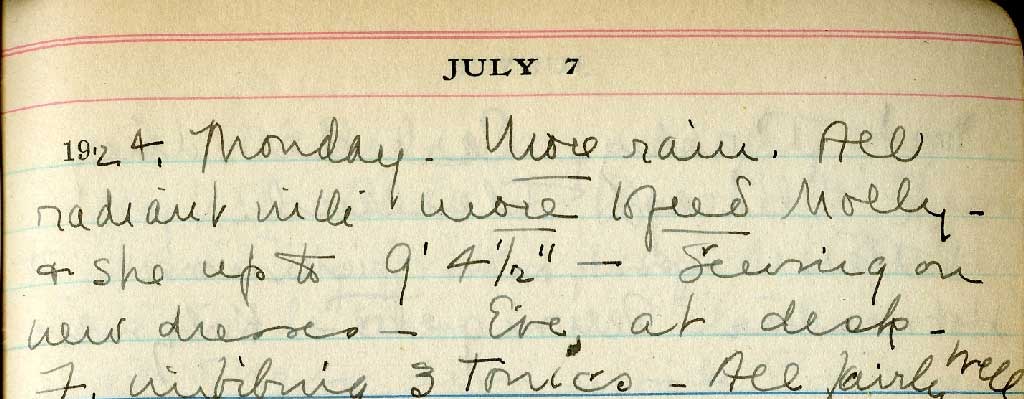 JULY 7
1924. Monday. More rain. All
radiant with more speed Molly -
& she up to 9' 4 1/2" - Sewing on
new dresses - Eve, at desk -
F. imbibing 3 Tonics - All fairly well